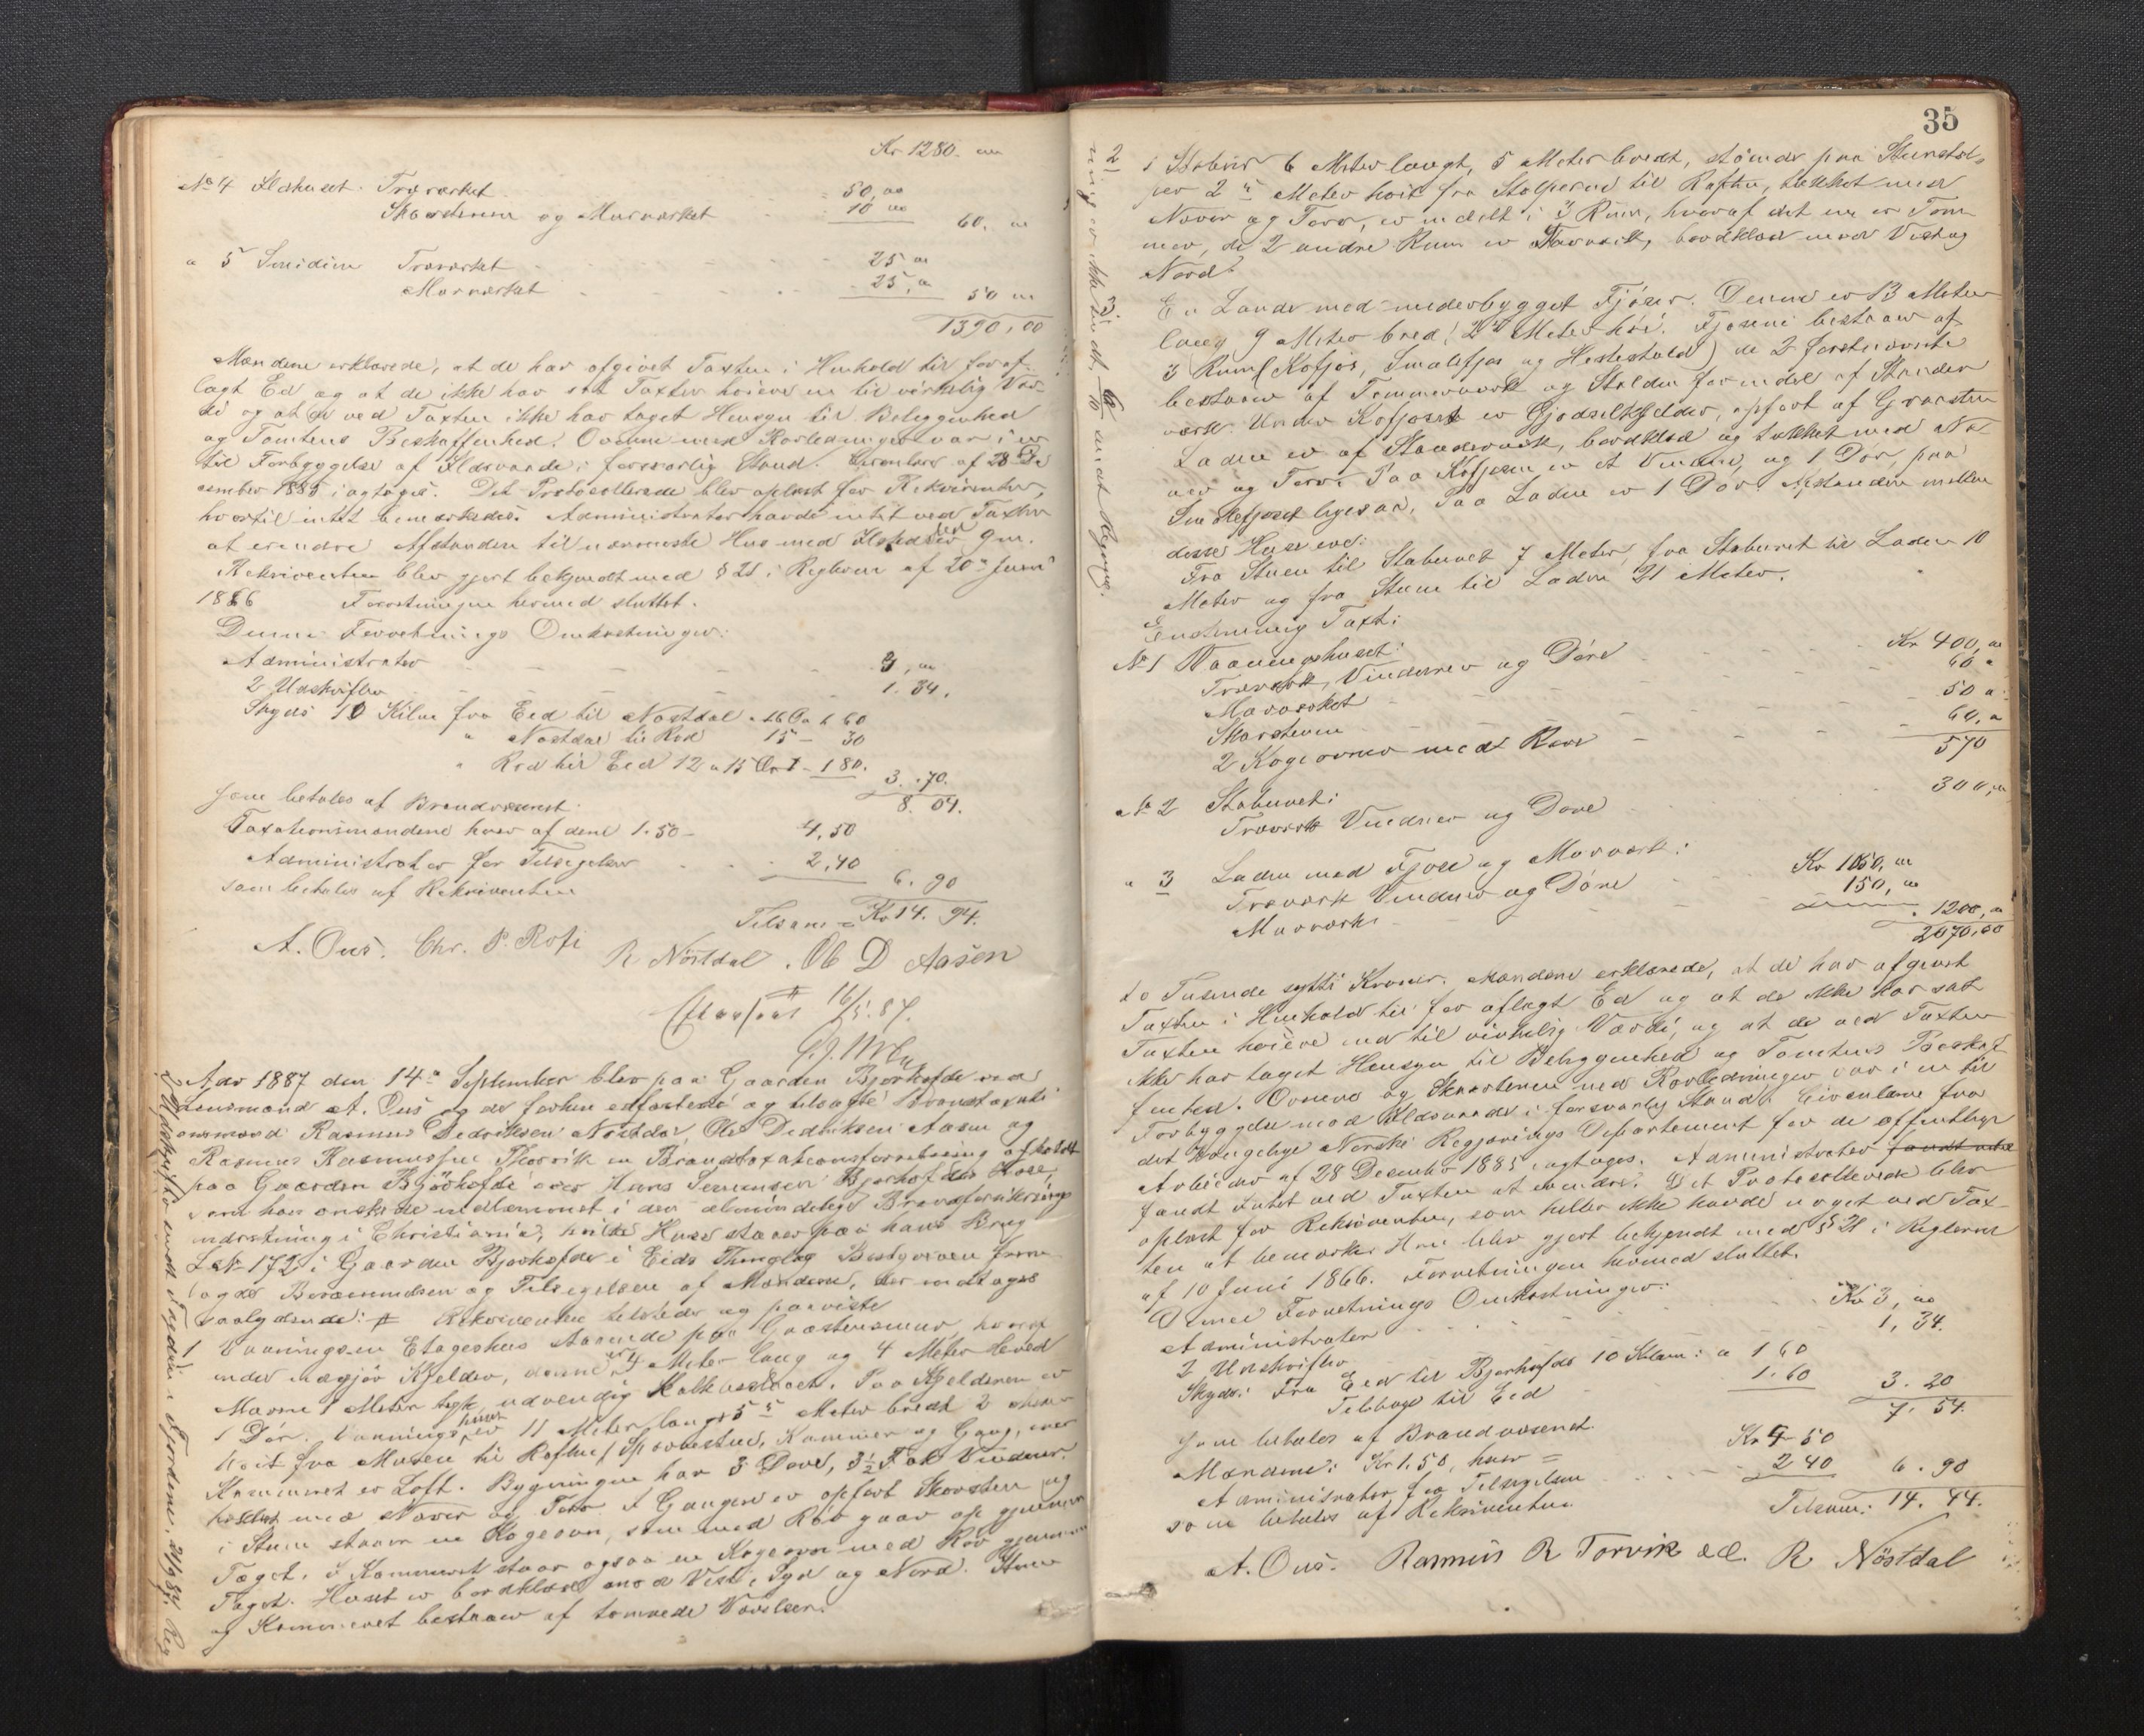 Kr 1280. "
No 4 Ildhuset: Træværket 50, "
Skorstenen og Murværket 10 "
60. "
" 5 Smidien Træværket 25 "
Murværket 25, "
50 "
1390,00
Mændene erklærede, at de har afgivet Taxten i Henhold til før af-
lagt Ed og at de ikke har sat Taxten høiere en til virkelig Vær-
di og at de ved Taxten ikke har taget Hensyn til Beliggenhed
og Tomtens Beskaffenhed. Ovnene med Rørledninger var i en
til Forbyggelse af Ildsvaade, forsvarlig Stand. Circulære af 28 De
cember 1885 iagtages. Det Protocollerede blev oplæst for Rekvirenten,
hvortil intet bemærkedes. Administrator havde intet ved Taxten
at erindre Afstanden til nærmeste Hus med Ildsted er 9 m.
Rekvirenten blev gjort bekjendt med § 21 i Reglerne af 20de Juni
1866 Forretningen hermed sluttet.
Denne Forretnings Omkostninger:
Administrator 3, "
2 Udskrifter 1. 34.
Skyds 10 Kilm fra Eid til Nøstdal a 16 Ør 1 60
" Nøstdal til Rød 15 — 30
" Rød til Eid 12 a 15 Ør 1 — 180.
3. 70.
som betales af Brandvæsenet. 8. 04.
Taxationsmændene hver af dem 1.50 — 4.50
Administrator for Tilsigelser 2,40
som betales af Rekvirenten 6. 90
Tilsam = Kr 14. 94.
A. Ous. Chr. P. Roti R Nöstdal. Ol D Aasen
16/5. 87.
Aar 1887 den 14de September blev paa Gaarden Bjørhofde ved
Lensmand A. Ous og de forhen edfæstede og tilsagte Brandtaxati
onsmænd Rasmus Dedriksen Nøstdal, Ole Dedriksen Aasen og
Rasmus Rasmussen Thorvik en Brandtaxationsforretning afholdt
paa Gaarden Bjørhofde over Hans Bjørhofdes Huse,
som han ønskede indlemmet i den almindelige Brandforsikrings
indretning i Christiania, hvilke Huse staaer paa hans Brug
L No 172 i Gaarden Bjørhofde i Eids Thinglag Bestyreren frem
lagde Berammelsen og Tilsigelsen af Mændene, der indtages
saalydende: # Rekvirenten tilstede og paaviste
1 Vaaningsen Etageshus staaende paa Graastensmur, hvoraf
under udgjør Kjelder, denne er 4 Meter lang og 4 Meter bred
Murene 1 Meter tyk, udvendig Kalkudslaaet. Paa Kjelderen er
1 Dør. Vaanings huset er 11 Meter langt 5 5 Meter bredt 2
høit fra Muren til Raften, Kammer og Gang, over
Kammeret er Loft. Bygningen har 3 Døre, 3½ Fak Vinduer.
tækket med Næver og Torv I Gangen er opført Skorsten og
i Stuen staaer en Kogeovn, som med Rør gaar op gjennem
Taget. I Kammeret staar ogsaa en Kogeovn med Rør gjennem
Taget. Huset er bordklædt mod Vest, Syd og Nord. Stuen
og Kammeret bestaaer af tømrede Værelser.
2 Udskrifter sendt Fogden i Fjordene, 21/9 87. Reg
ning er ikke sendt, 6/10 sendt Regnge.
35
2 1 Stabur 6 Meter langt, 5 Meter bredt, staaende paa Stenstol-
per 2 5 Meter høit fra Stolperne til Raften, tækket med
Næver og Torv, er inddelt i 3 Rum, hvoraf det ene er Tøm-
mer, de 2 andre Rum er Stavværk, bordklædt mod Vest og
Nord.
3 En Lade med underbygget Fjøser. Denne er 13 Meter
lang, 9 Meter bred, 2 Meter høi. Fjøsene bestaaer af
3 Rum (Kofjøs, Smalefjøs og Hestestald) de 2 førstnævnte
bestaaer af Tømmerværk og Stalden formedel af Stander
værk. Under Kofjøset er Gjødselkjelder, opført af Graasten
Laden er af Standerværk, bordklædt og tækket med Næ-
ver og Torv. Paa Kofjøsen er et Vindue, og 1 Dør, paa
Smalefjøset ligesaa, Paa Laden er 1 Dør. Afstanden mellem
disse Huse ere:
Fra Stuen til Staburet 7 Meter, fra Staburet til Laden 10
Meter og fra Stuen til Laden 21 Meter.
Enstemmig Taxt:
No 1 Vaaningshuset:
Træværk, Vinduer og Døre Kr 400, "
Murværket 60 "
Skorstenen 50 "
2 Kogeovner med Rør 60, "
570
No 2 Staburet:
Træværk Vinduer og Døre 300, "
" 3 Laden med Fjøse og Murværk:
Træværk Vinduer og Døre Kr 1050, "
Murværk 150, "
1200, "
2070,00
to Tusende sytti Kroner. Mændene erklærede, at de har afgivet
Taxten i Henhold til før aflagt Ed og at de ikke har sat
Taxten høiere end til virkelig Værdi, og at de ved Taxten
ikke har taget Hensyn til Beliggenhed og Tomtens Beskaf
fenhed. Ovnene og Skorstenen med Rørledninger var i en til
Forbyggelse mod Ildsvaade i forsvarlig Stand. Circulære fra
det Kongelige Norske Regjerings Departement for de offentlige
Arbeider af 28 December 1885 iagtages. Administrator fandt intet
fandt Intet ved Taxten at erindre. Det Protocollerede blev
oplæst for Rekvirenten, som heller ikke havde noget ved Tax-
ten at bemærke Han blev gjort bekjendt med § 21 i Reglerne
af 10 Juni 1866. Forretningen hermed sluttet.
Denne Forretnings Omkostninger:
Administrator Kr 3, "
2 Udskrifter 1, 34.
Skyds: Fra Eid til Bjørhofde 10 Kilm: a 1 60
Tilbage til Eid 1.60 3. 20
som betales af Brandvæsenet. 7. 54.
Mændene: Kr 1.50, hver = Kr 4 50
Administrator for Tilsigelsen 2 40 6. 90
som betales af Rekvirenten. Tilsam: 14. 44.
A. Ous. Rasmus R Torvik R Nöstdal